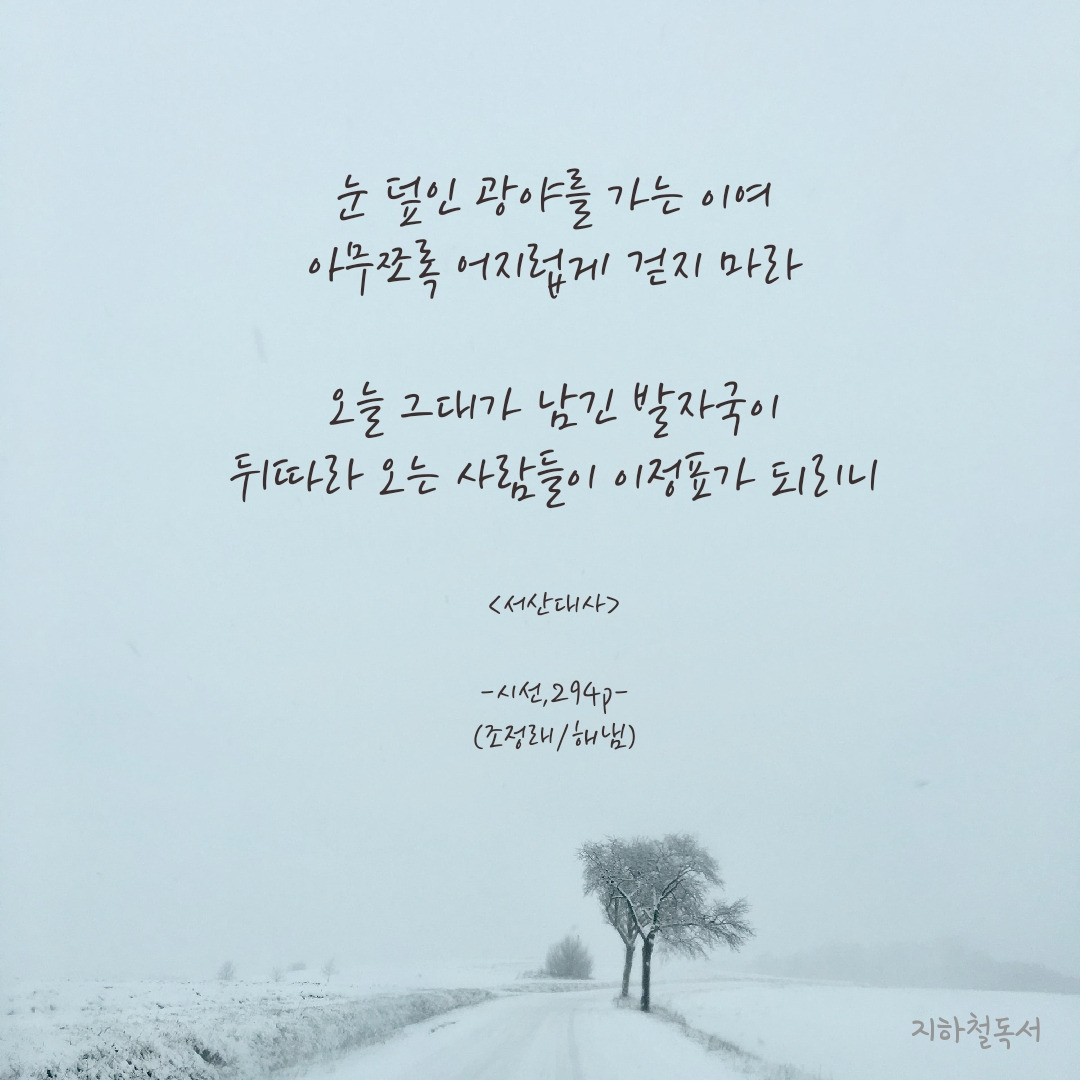 눈 덮인 광야를 가는 이여
아무쪼록 어지럽게 걷지 마라
오늘 그대가 남긴 발자국이
뒤따라 오는 사람들이 이정표가 되리니
<서산대사>
-시선,294p-
(조정래/해냄)
지하철독서